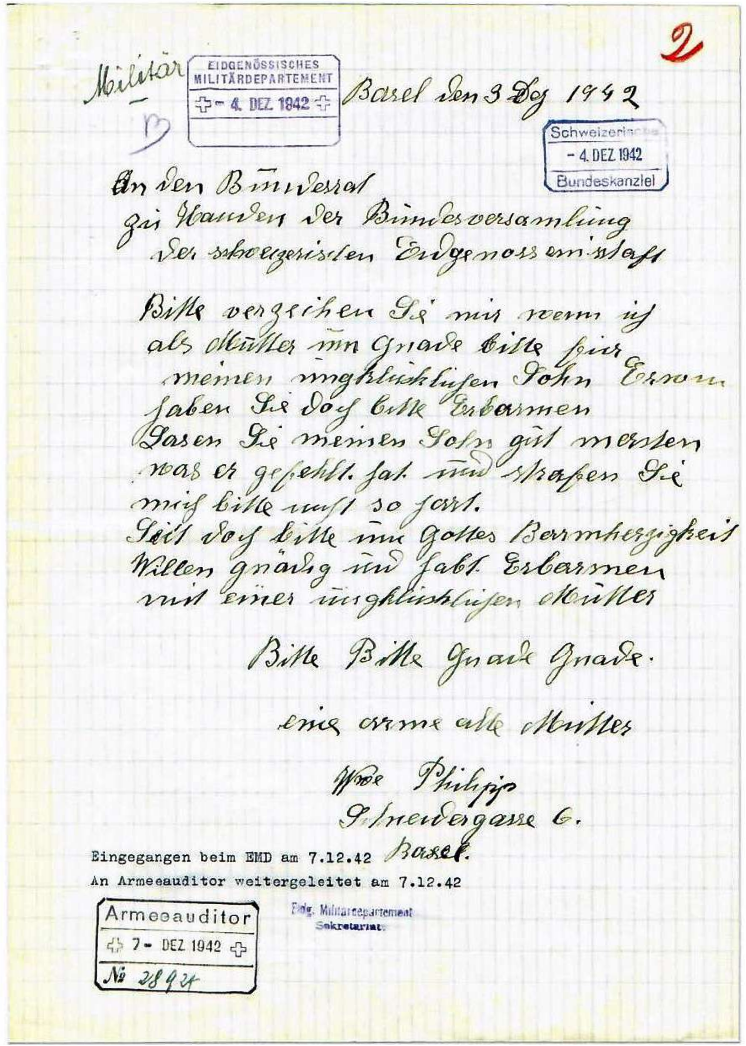 2
Militär
EIDGENÖSSISCHES
MILITÄRDEPARTEMENT
- 4. DEZ. 1942
Basel den 3 Dez 1942
Schweizerische
- 4. DEZ. 1942
Bundeskanzlei
An den Bundesrat
zu Handen der Bundesversamlung
der schweizerischen Eidgenossenschaft
Bitte verzeihen Sie mir wenn ich
als Mutter um Gnade bitte für
meinen unglücklichen Sohn Erwin
haben Sie doch bitte Erbarmen
Lasen Sie meinen Sohn gut machen
was er gefehlt hat und strafen Sie
mich bitte nicht so hart.
Seit doch bitte um Gottes Barmherzigkeit
Willen gnädig und habt Erbarmen
mit einer unglücklichen Mutter
Bitte Bitte Gnade Gnade.
eine arme alte Mutter
Wwe Philipp
Schneidergasse 6.
Basel.
Eingegangen beim EMD am 7.12.42
An Armeeauditor weitergeleitet am 7.12.42
Eidg. Militärdepartement
Sekretariat
Armeeauditor
7- DEZ. 1942
No